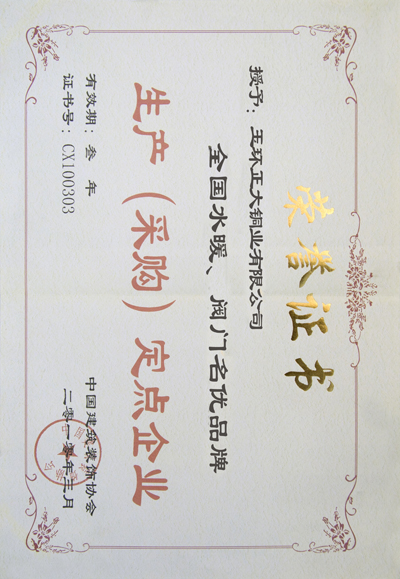 荣誉证书
授予：玉环正大铜业有限公司
全国水暖、阀门名优品牌
生产（采购）定点企业
有效期：叁年
证书号：CX100303
中国建筑装饰协会
二零一零年三月